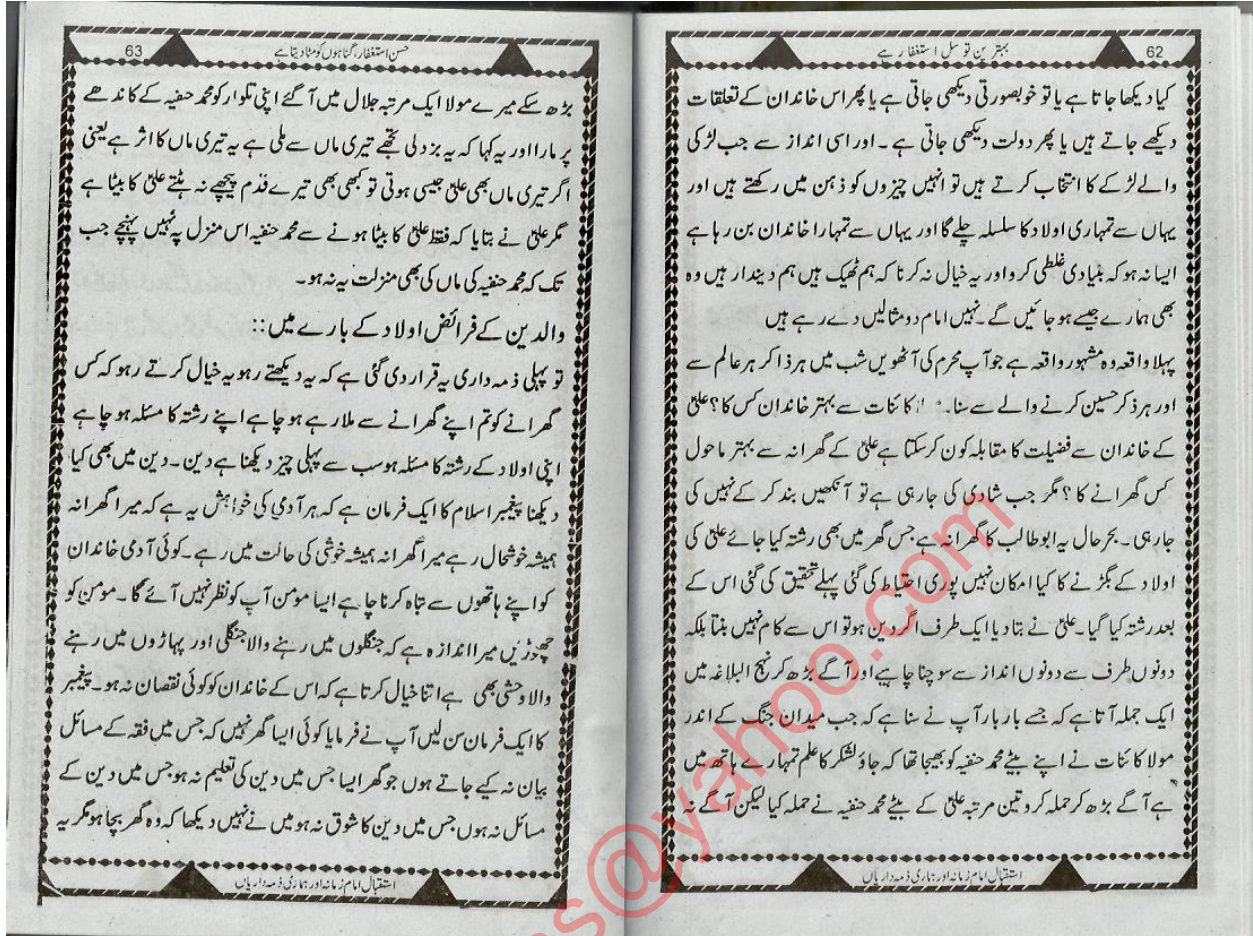 62
بہترین توسل استغفار ہے
کیا دیکھا جاتا ہے یا تو خوبصورتی دیکھی جاتی ہے یا پھر اس خاندان کے تعلقات
دیکھے جاتے ہیں یا پھر دولت دیکھی جاتی ہے۔ اور اسی انداز سے جب لڑکی
والے لڑکے کا انتخاب کرتے ہیں تو انہیں چیزوں کو ذہن میں رکھتے ہیں اور
یہاں سے تمہاری اولاد کا سلسلہ چلے گا اور یہاں سے تمہارا خاندان بن رہا ہے
ایسا نہ ہو کہ بنیادی غلطی کرو اور یہ خیال نہ کرنا کہ ہم ٹھیک ہیں ہم دیندار ہیں وہ
بھی ہمارے جیسے ہو جائیں گے۔ نہیں امام دو مثالیں دے رہے ہیں
پہلا واقعہ وہ مشہور واقعہ ہے جو آپ محرم کی آٹھویں شب میں ہر ذاکر ہر عالم سے
اور ہر ذکر حسین کرنے والے سے سنا۔ کائنات سے بہتر خاندان کس کا؟ علیؑ
کے خاندان سے فضیلت کا مقابلہ کون کر سکتا ہے علیؑ کے گھرانہ سے بہتر ماحول
کس گھرانے کا؟ مگر جب شادی کی جا رہی ہے تو آنکھیں بند کر کے نہیں کی
جا رہی۔ بحر حال یہ ابو طالب کا گھرانہ ہے جس گھر میں بھی رشتہ کیا جائے علیؑ کی
اولاد کے بگڑنے کا کیا امکان نہیں پوری احتیاط کی گئی پہلے تحقیق کی گئی اس کے
بعد رشتہ کیا گیا۔ علیؑ نے بتا دیا ایک طرف اگر دین ہو تو اس سے کام نہیں بنتا بلکہ
دونوں طرف سے دونوں انداز سے سوچنا چاہیے اور آگے بڑھ کر نہج البلاغہ میں
ایک جملہ آتا ہے کہ جسے بار بار آپ نے سنا ہے کہ جب میدان جنگ کے اندر
مولا کائنات نے اپنے بیٹے محمد حنفیہ کو بھیجا تھا کہ جاؤ لشکر کا علم تمہارے ہاتھ میں
ہے آگے بڑھ کر حملہ کرو تین مرتبہ علیؑ کے بیٹے محمد حنفیہ نے حملہ کیا لیکن آگے نہ
استقبال امام زمانہ اور ہماری ذمہ داریاں
63
حسن استغفار، گناہوں کو مٹا دیتا ہے
بڑھ سکے میرے مولا ایک مرتبہ جلال میں آ گئے اپنی تلوار کو محمد حنفیہ کے کاندھے
پر مارا اور یہ کہا کہ یہ بزدلی تجھے تیری ماں سے ملی ہے یہ تیری ماں کا اثر ہے یعنی
اگر تیری ماں بھی علیؑ جیسی ہوتی تو کبھی بھی تیرے قدم پیچھے نہ ہٹتے علیؑ کا بیٹا ہے
مگر علیؑ نے بتایا کہ فقط علیؑ کا بیٹا ہونے سے محمد حنفیہ اس منزل پہ نہیں پہنچے جب
تک کہ محمد حنفیہ کی ماں کی بھی منزلت یہ نہ ہو۔
والدین کے فرائض اولاد کے بارے میں::
تو پہلی ذمہ داری یہ قرار دی گئی ہے کہ یہ دیکھتے رہو یہ خیال کرتے رہو کہ کس
گھرانے کو تم اپنے گھرانے سے ملا رہے ہو چاہے اپنے رشتہ کا مسئلہ ہو چاہے
اپنی اولاد کے رشتہ کا مسئلہ ہو سب سے پہلی چیز دیکھنا ہے دین۔ دین میں بھی کیا
دیکھنا پیغمبر اسلام کا ایک فرمان ہے کہ ہر آدمی کی خواہش یہ ہے کہ میرا گھرانہ
ہمیشہ خوشحال رہے میرا گھرانہ ہمیشہ خوشی کی حالت میں رہے۔ کوئی آدمی خاندان
کو اپنے ہاتھوں سے تباہ کرنا چاہے ایسا مومن آپ کو نظر نہیں آئے گا۔ مومن کو
چھوڑیں میرا اندازہ ہے کہ جنگلوں میں رہنے والا جنگلی اور پہاڑوں میں رہنے
والا وحشی بھی ہے اتنا خیال کرتا ہے کہ اس کے خاندان کو کوئی نقصان نہ ہو۔ پیغمبر
کا ایک فرمان سن لیں آپ نے فرمایا کوئی ایسا گھر نہیں کہ جس میں فقہ کے مسائل
بیان نہ کیے جاتے ہوں جو گھر ایسا جس میں دین کی تعلیم نہ ہو جس میں دین کے
مسائل نہ ہوں جس میں دین کا شوق نہ ہو میں نے نہیں دیکھا کہ وہ گھر بچا ہو مگر یہ
استقبال امام زمانہ اور ہماری ذمہ داریاں
s@yahoo.com